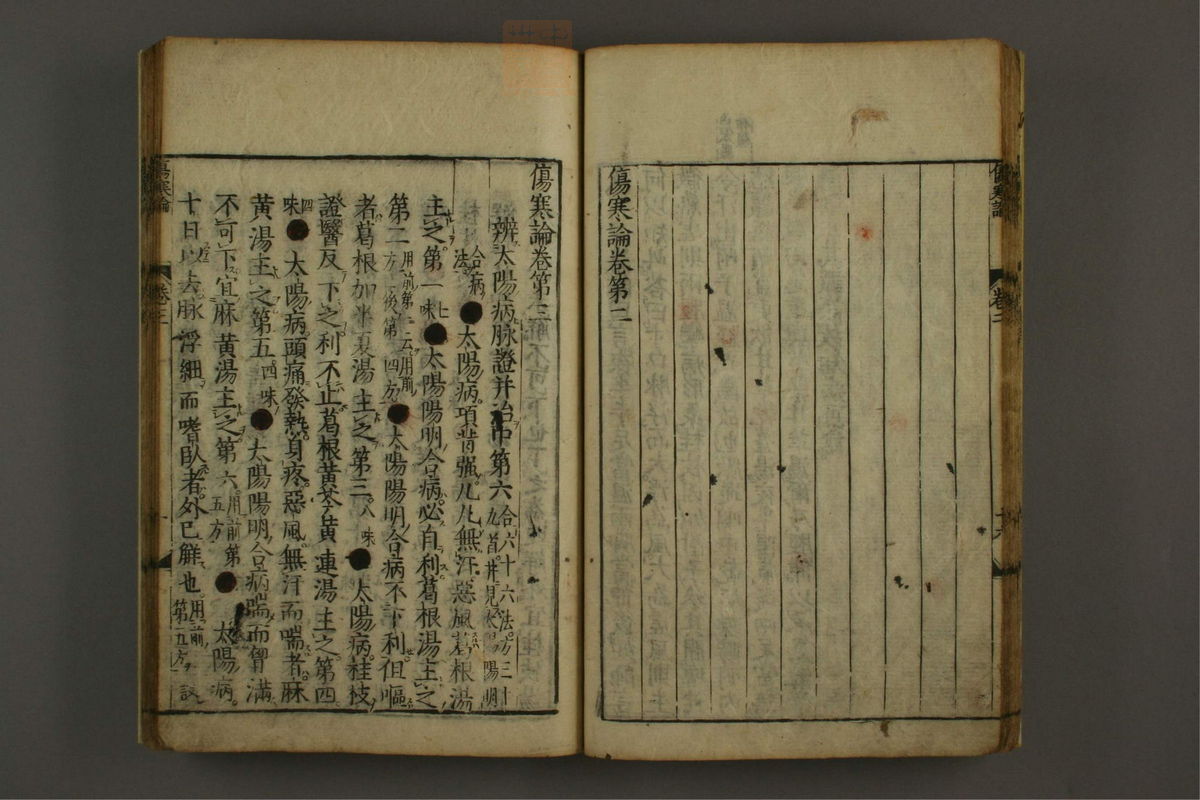 傷寒論 卷二 十六
傷寒論卷第二
傷寒論卷第三
辨太陽病脉證并治中第六 合六十六法方三十九首并見太陽陽明合病法
●太陽病項背強几几無汗惡風葛根湯
主之第一 七味 ●太陽陽明合病必自利葛根湯主之
第二 用前第一云用前方後第四方 ●太陽陽明合病不下利但嘔
者葛根加半夏湯主之第三 八味 ●太陽病桂枝
證醫反下之利不止葛根黃芩黃連湯主之第四
四味 ●太陽病頭痛發熱身疼惡風無汗而喘者麻
黃湯主之第五 四味 ●太陽陽明合病喘而胷滿
不可下宜麻黃湯主之第六 用前第五方 ●太陽病
十日以去脉浮細而嗜臥者外已解也 用前第五方 設
傷寒論 卷三